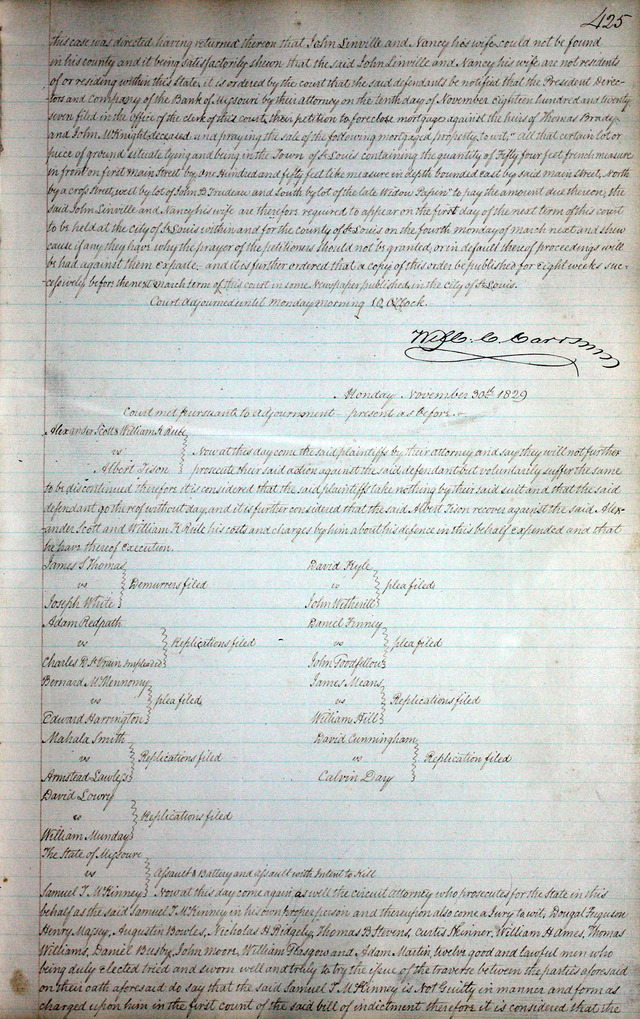 425
this case was directed having returned thereon that John Linville and Nancy his wife could not be found
in his county and it being satisfactorily shewn that the said John Linville and Nancy his wife are not residents
of or residing within this State, it is ordered by the court that the said defendants be notified that the President Direc-
tors and company of the Bank of Missouri by their attorney on the tenth day of November eighteen hundred and twenty
seven filed in the office of the clerk of this court, their petition to foreclose mortgage against the heirs of Thomas Brady
and John McKnight deceased and praying the sale of the following mortgaged property to wit, "all that certain lot or
piece of ground situate lying and being in the Town of St Louis containing the quantity of Fifty four feet french measure
in front on first main Street by One Hundred and fifty feet like measure in depth bounded east by said main Street, North
by a crop Street, west by lot of John B Trudeau and South by lot of the late Widow to pay the amount due thereon, the
said John Linville and Nancy his wife are therefore required to appear on the first day of the next term of this court
to be held at the city of St Louis within and for the county of St Louis on the fourth monday of march next and shew
cause if any they have why the prayer of the petitioners should not be granted, or in default thereof proceedings will
be had against them exparte and it is further ordered that a copy of this order be published for eight weeks suc-
cessively before the next march term of this court in some Newspaper published in the city of St Louis.
Court adjourned until monday morning 10 O'Clock.
Wm C. Carr
Monday November 30th 1829
Court met pursuant to adjournment present as before.
Alexander Scott & William K Rule
vs Now at this day come the said plaintiffs by their attorney and say they will not further
Albert Tison prosecute their said action against the said defendant but voluntarily suffer the same
to be discontinued therefore it is considered that the said plaintiffs take nothing by their said suit and that the said
defendant go thereof without day, and it is further considered that the said Albert Tison recover against the said Alex-
ander Scott and William K Rule his costs and charges by him about his defence in this behalf expended and that
he have thereof execution.
James S Thomas David Kyle
vs Demurrers filed vs plea filed
Joseph White John Wetherill
Adam Redpath Daniel Finney
vs Replications filed vs plea filed
Charles D St Vrain impleaded John Goodfellow
Bernard McMennomy James Means
vs plea filed vs Replications filed
Edward Harrington William Hill
Mahala Smith David Cunningham
vs Replications filed vs Replication filed
Armstead Lawless Calvin Day
David Lowry
vs Replications filed
William Munday
The State of Missouri
vs Assault & Battery and assault with Intent to Kill
Samuel T. McKinney Now at this day come again as well the circuit Attorney who prosecutes for the State in this
behalf as the said Samuel T McKinney in his own proper person and thereupon also come a Jury to wit, Dougal Ferguson
Henry Massey, Augustin Bowles, Nicholas H Ridgely, Thomas B Stevens, Curtis Skinner, William H Ames, Thomas
Williams, Daniel Busby, John Moore, William Glasgow and Adam Martin, twelve good and lawful men who
being duly elected tried and sworn well and truly to try the issue of the traverse between the parties aforesaid
on their oath aforesaid do say that the said Samuel T. McKinney is Not Guilty in manner and form as
charged upon him in the first count of the said bill of indictment therefore it is considered that the